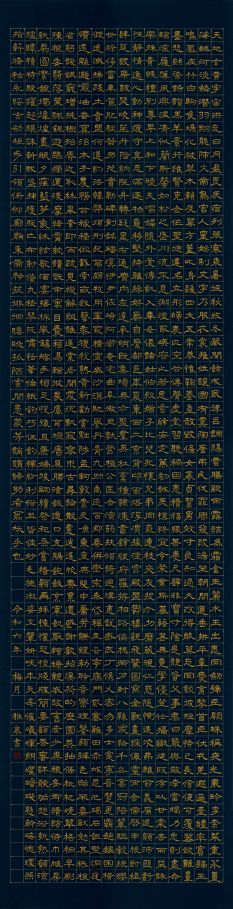 天地玄黃宇宙洪荒日月盈昃辰宿列張寒來暑往秋收冬藏閏餘成歲律呂調陽雲騰致雨露結為霜金生麗水玉出崑岡劍號巨闕珠稱夜光果珍李柰菜重芥薑
海鹹河淡鱗潛羽翔龍師火帝鳥官人皇始制文字乃服衣裳推位讓國有虞陶唐弔民伐罪周發殷湯坐朝問道垂拱平章愛育黎首臣伏戎羌遐邇壹體率賓歸王
鳴鳳在樹白駒食場化被草木賴及萬方蓋此身髮四大五常恭惟鞠養豈敢毀傷女慕貞潔男效才良知過必改得能莫忘罔談彼短靡恃己長信使可覆器欲難量
墨悲絲染詩讚羔羊景行維賢克念作聖德建名立形端表正空谷傳聲虛堂習聽禍因惡積福緣善慶尺璧非寶寸陰是競資父事君曰嚴與敬孝當竭力忠則盡命
臨深履薄夙興溫凊似蘭斯馨如松之盛川流不息淵澄取映容止若思言辭安定篤初誠美慎終宜令榮業所基籍甚無竟學優登仕攝職從政存以甘棠去而益詠
樂殊貴賤禮別尊卑上和下睦夫唱婦隨外受傅訓入奉母儀諸姑伯叔猶子比兒孔懷兄弟同氣連枝交友投分切磨箴規仁慈隱惻造次弗離節義廉退顛沛匪虧
性靜情逸心動神疲守真志滿逐物意移堅持雅操好爵自縻都邑華夏東西二京背邙面洛浮渭據涇宮殿盤鬱樓觀飛驚圖寫禽獸畫綵仙靈丙舍傍啟甲帳對楹
肆筵設席鼓瑟吹笙升階納陛弁轉疑星右通廣內左達承明既集墳典亦聚群英杜稾鍾隸漆書壁經府羅將相路俠槐卿戶封八縣家給千兵高冠陪輦驅轂振纓
世祿侈富車駕肥輕策功茂實勒碑刻銘磻溪伊尹佐時阿衡奄宅曲阜微旦孰營桓公匡合濟弱扶傾綺迴漢惠說感武丁俊乂密勿多士寔寧晉楚更霸趙魏困橫
假途滅虢踐土會盟何遵約法韓弊煩刑起翦頗牧用軍最精宣威沙漠馳譽丹青九州禹跡百郡秦并嶽宗恆岱禪主云亭雁門紫塞雞田赤城昆池碣石鉅野洞庭
曠遠綿邈巖岫杳冥治本於農務茲稼穡俶載南畝我藝黍稷稅熟貢新勸賞黜陟孟軻敦素史魚秉直庶幾中庸勞謙謹敕聆音察理鑑貌辨色貽厥嘉猷勉其祗植
省躬譏誡寵增抗極殆辱近恥林皋幸即兩疏見機解組誰逼索居閒處沈默寂寥求古尋論散慮逍遙欣奏累遣慼謝歡招渠荷的歷園莽抽條枇杷晚翠梧桐早凋
陳根委翳落葉飄颻游鵾獨運凌摩絳霄耽讀翫市寓目囊箱易輶攸畏屬耳垣牆具膳餐飯適口充腸飽飫烹宰飢厭糟糠親戚故舊老少異糧妾御績紡侍巾帷房
紈扇圓潔銀燭煒煌晝眠夕寐藍筍象床弦歌酒讌接杯舉觴矯手頓足悅豫且康嫡後嗣續祭祀烝嘗稽顙再拜悚懼恐惶牋牒簡要顧答審詳骸垢想浴執熱願涼
驢騾犢特駭躍超驤誅斬賊盜捕獲叛亡布射遼丸嵇琴阮嘯恬筆倫紙鈞巧任釣釋紛利俗並皆佳妙毛施淑姿工顰妍笑年矢每催曦暉朗曜璇璣懸斡晦魄環照
指薪脩祜永綏吉劭矩步引領俯仰廊廟束帶矜莊徘徊瞻眺孤陋寡聞愚蒙等誚謂語助者焉哉乎也 令和六年 梅月 雅泉書